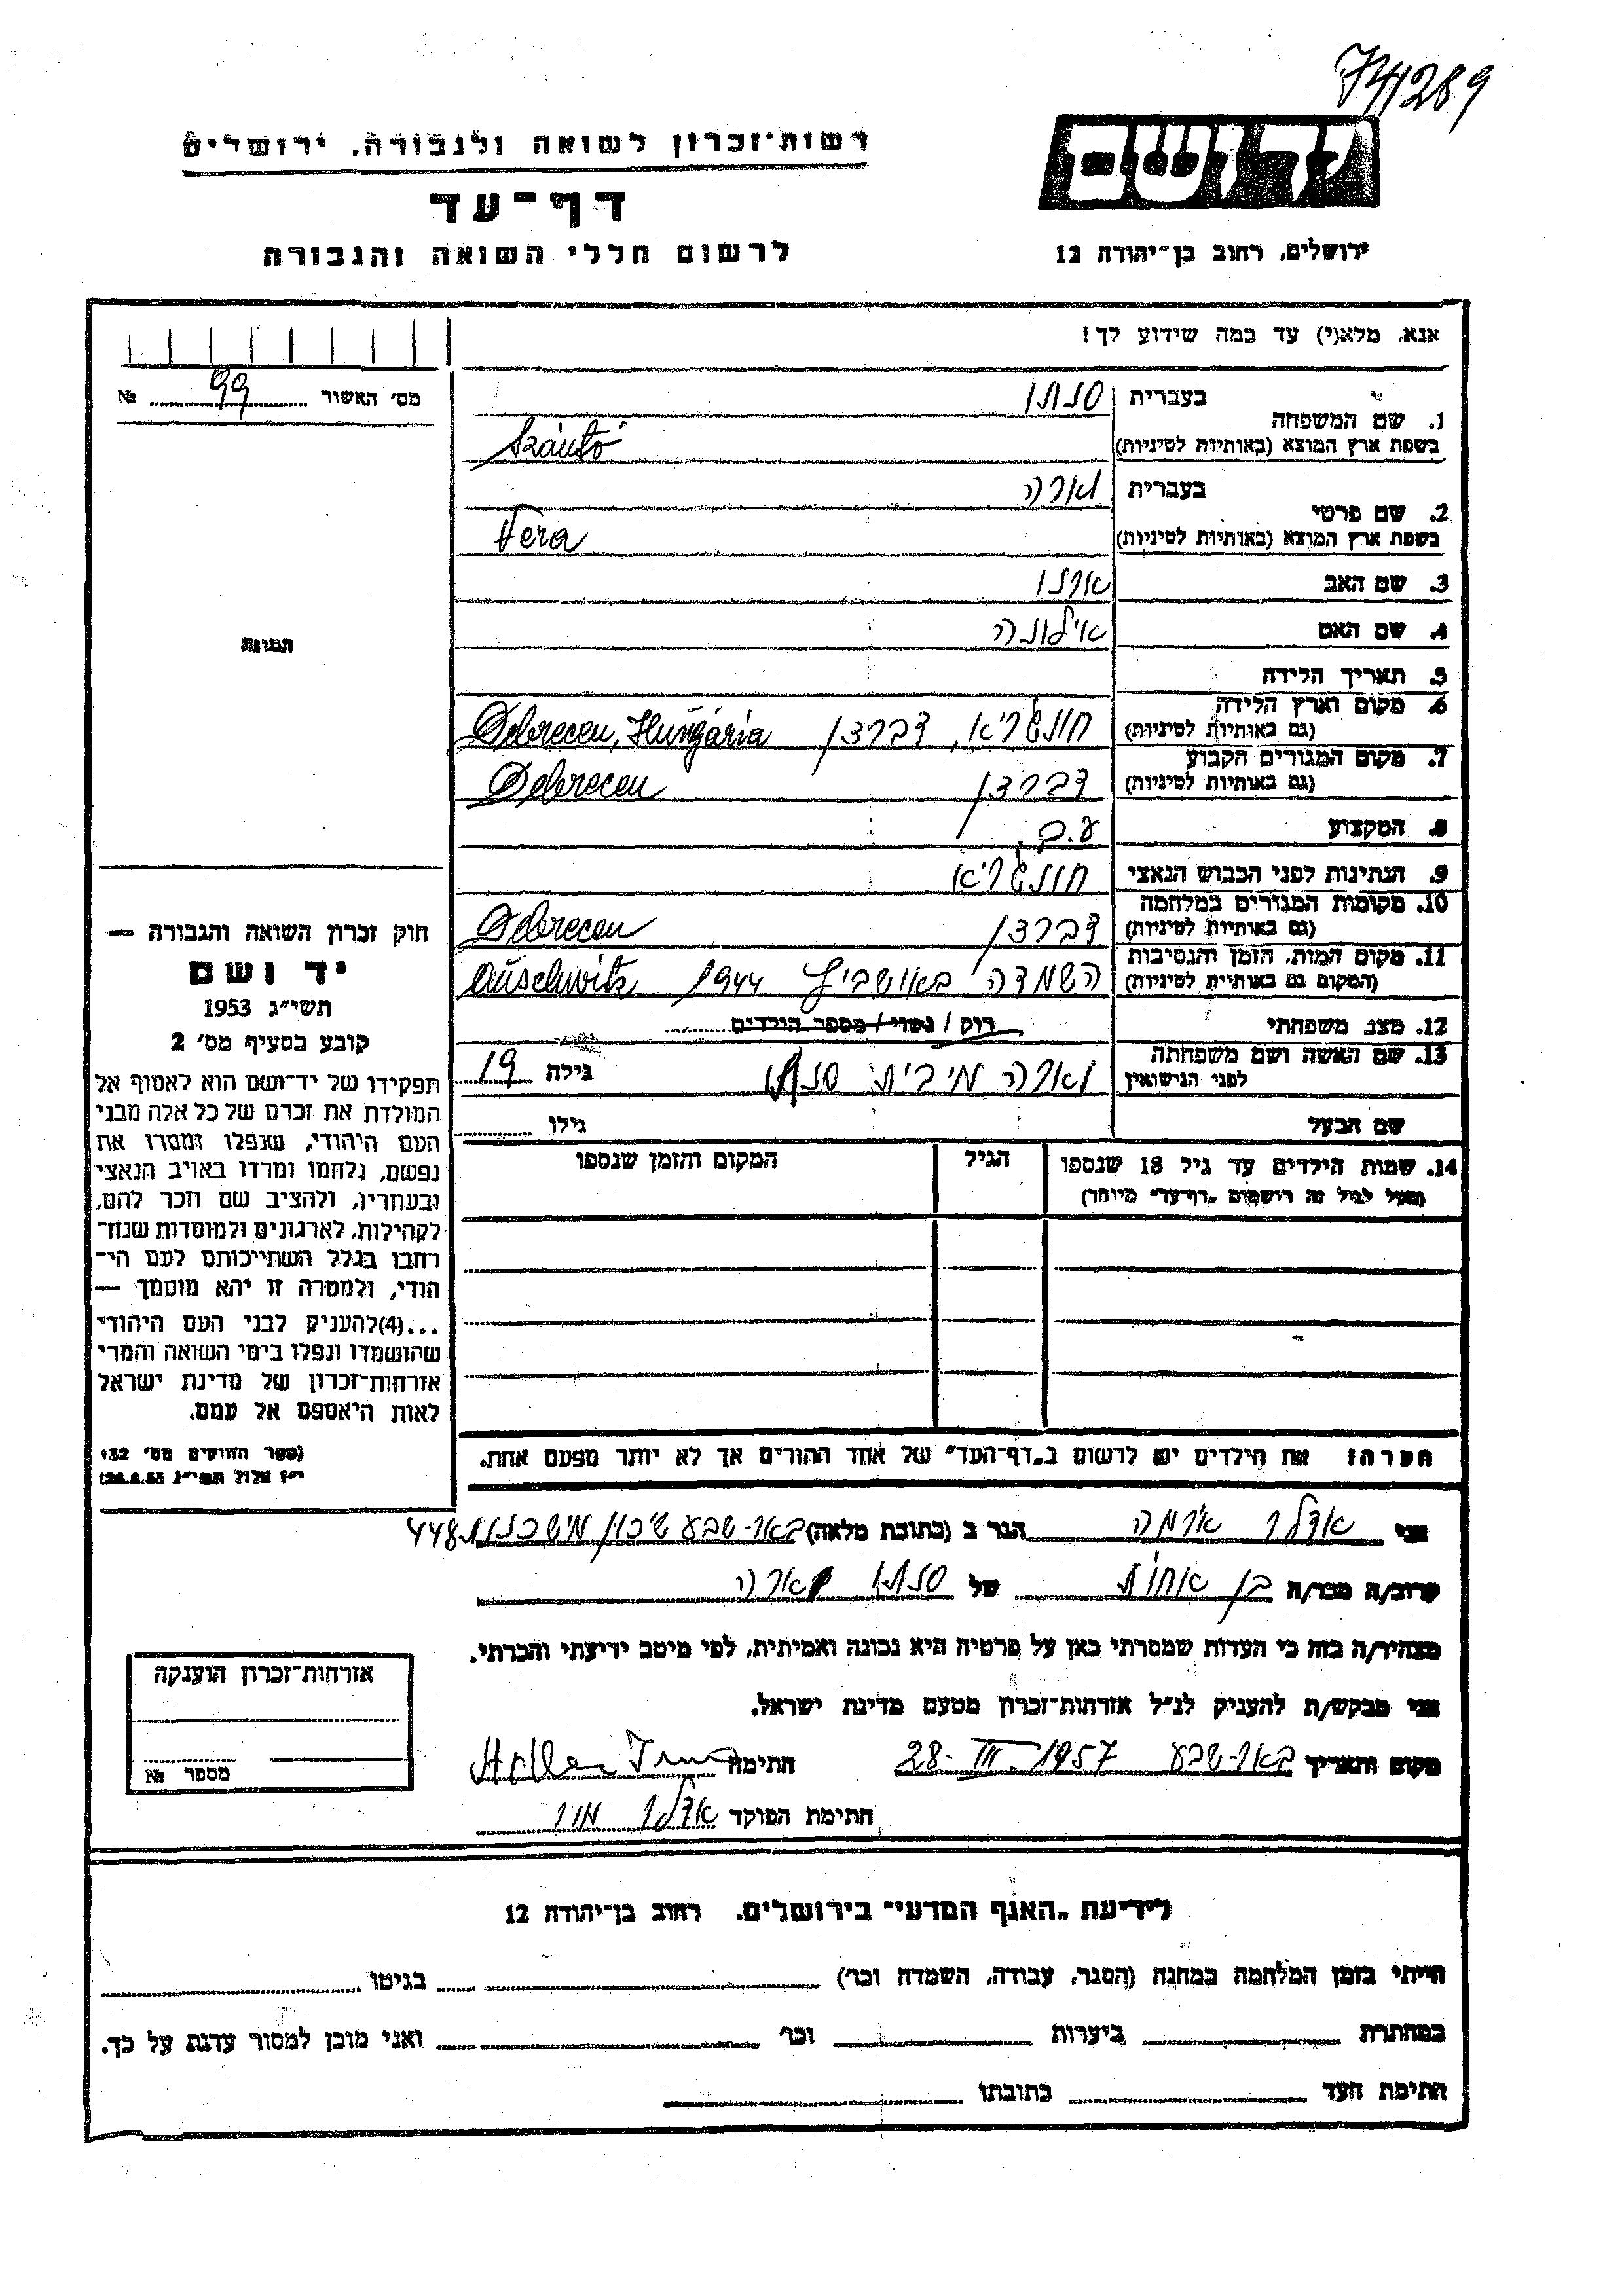 741289
יד ושם
רשות־זכרון לשואה ולגבורה, ירושלים
דף־עד
לרשום חללי השואה והגבורה
ירושלים, רחוב בן־יהודה 12
אנא, מלא(י) עד כמה שידוע לך!
מס׳ האשור 99 №
1. שם המשפחה
בעברית סנתו
בשפת ארץ המוצא (באותיות לטיניות) Szántó
2. שם פרטי
בעברית וארה
בשפת ארץ המוצא (באותיות לטיניות) Vera
3. שם האב
4. שם האם אילונה
5. תאריך הלידה
6. מקום וארץ הלידה (גם באותיות לטיניות) חונגריא, דברצן Debrecen, Hungária
7. מקום המגורים הקבוע (גם באותיות לטיניות) דברצן Debrecen
8. המקצוע ע.ב.
9. הנתינות לפני הכבוש הנאצי חונגריא
10. מקומות המגורים במלחמה (גם באותיות לטיניות) דברצן Debrecen
11. מקום המות, הזמן והנסיבות (המקום גם באותיות לטיניות) השמדה באושביץ 1944 Auschwitz
12. מצב משפחתי רוק / נשוי / מספר הילדים
13. שם האשה ושם משפחתה לפני הנישואין וארה מבית סנתו גילה 19
שם הבעל גילו
14. שמות הילדים עד גיל 18 שנספו הגיל המקום והזמן שנספו
(מעל לגיל זה רושמים „דף־עד״ מיוחד)
תמונה
חוק זכרון השואה והגבורה —
יד ושם
תשי״ג 1953
קובע בסעיף מס׳ 2
תפקידו של יד־ושם הוא לאסוף אל
המולדת את זכרם של כל אלה מבני
העם היהודי, שנפלו ומסרו את
נפשם, נלחמו ומרדו באויב הנאצי
ובעוזריו, ולהציב שם וזכר להם,
לקהילות, לארגונים ולמוסדות שנח־
רבו בגלל השתייכותם לעם הי־
הודי, ולמטרה זו יהא מוסמך —
...(4)להעניק לבני העם היהודי
שהושמדו ונפלו בימי השואה והמרי
אזרחות־זכרון של מדינת ישראל
לאות היאספם אל עמם.
(ספר החוקים מס׳ 132
י״ז אלול תשי״ג 28.8.53)
הערה: את הילדים יש לרשום ב„דף־העד״ של אחד ההורים אך לא יותר מפעם אחת.
אני אדלר אירמה הגר ב (כתובת מלאה) באר־שבע שיכון מישכנות 448
קרוב/ה מכר/ה בן אחות של סנתו וארה
מצהיר/ה בזה כי העדות שמסרתי כאן על פרטיה היא נכונה ואמיתית, לפי מיטב ידיעתי והכרתי.
אני מבקש/ת להעניק לנ״ל אזרחות־זכרון מטעם מדינת ישראל.
מקום ותאריך באר־שבע 28-III.1957 חתימה
חתימת הפוקד אדלר
אזרחות־זכרון הוענקה
מספר №
לידיעת „האגף המדעי״ בירושלים, רחוב בן־יהודה 12
הייתי בזמן המלחמה במחנה (הסגר, עבודה, השמדה וכו׳) בגיטו
במחתרת ביערות וכו׳ ואני מוכן למסור עדות על כך.
חתימת העד כתובתו